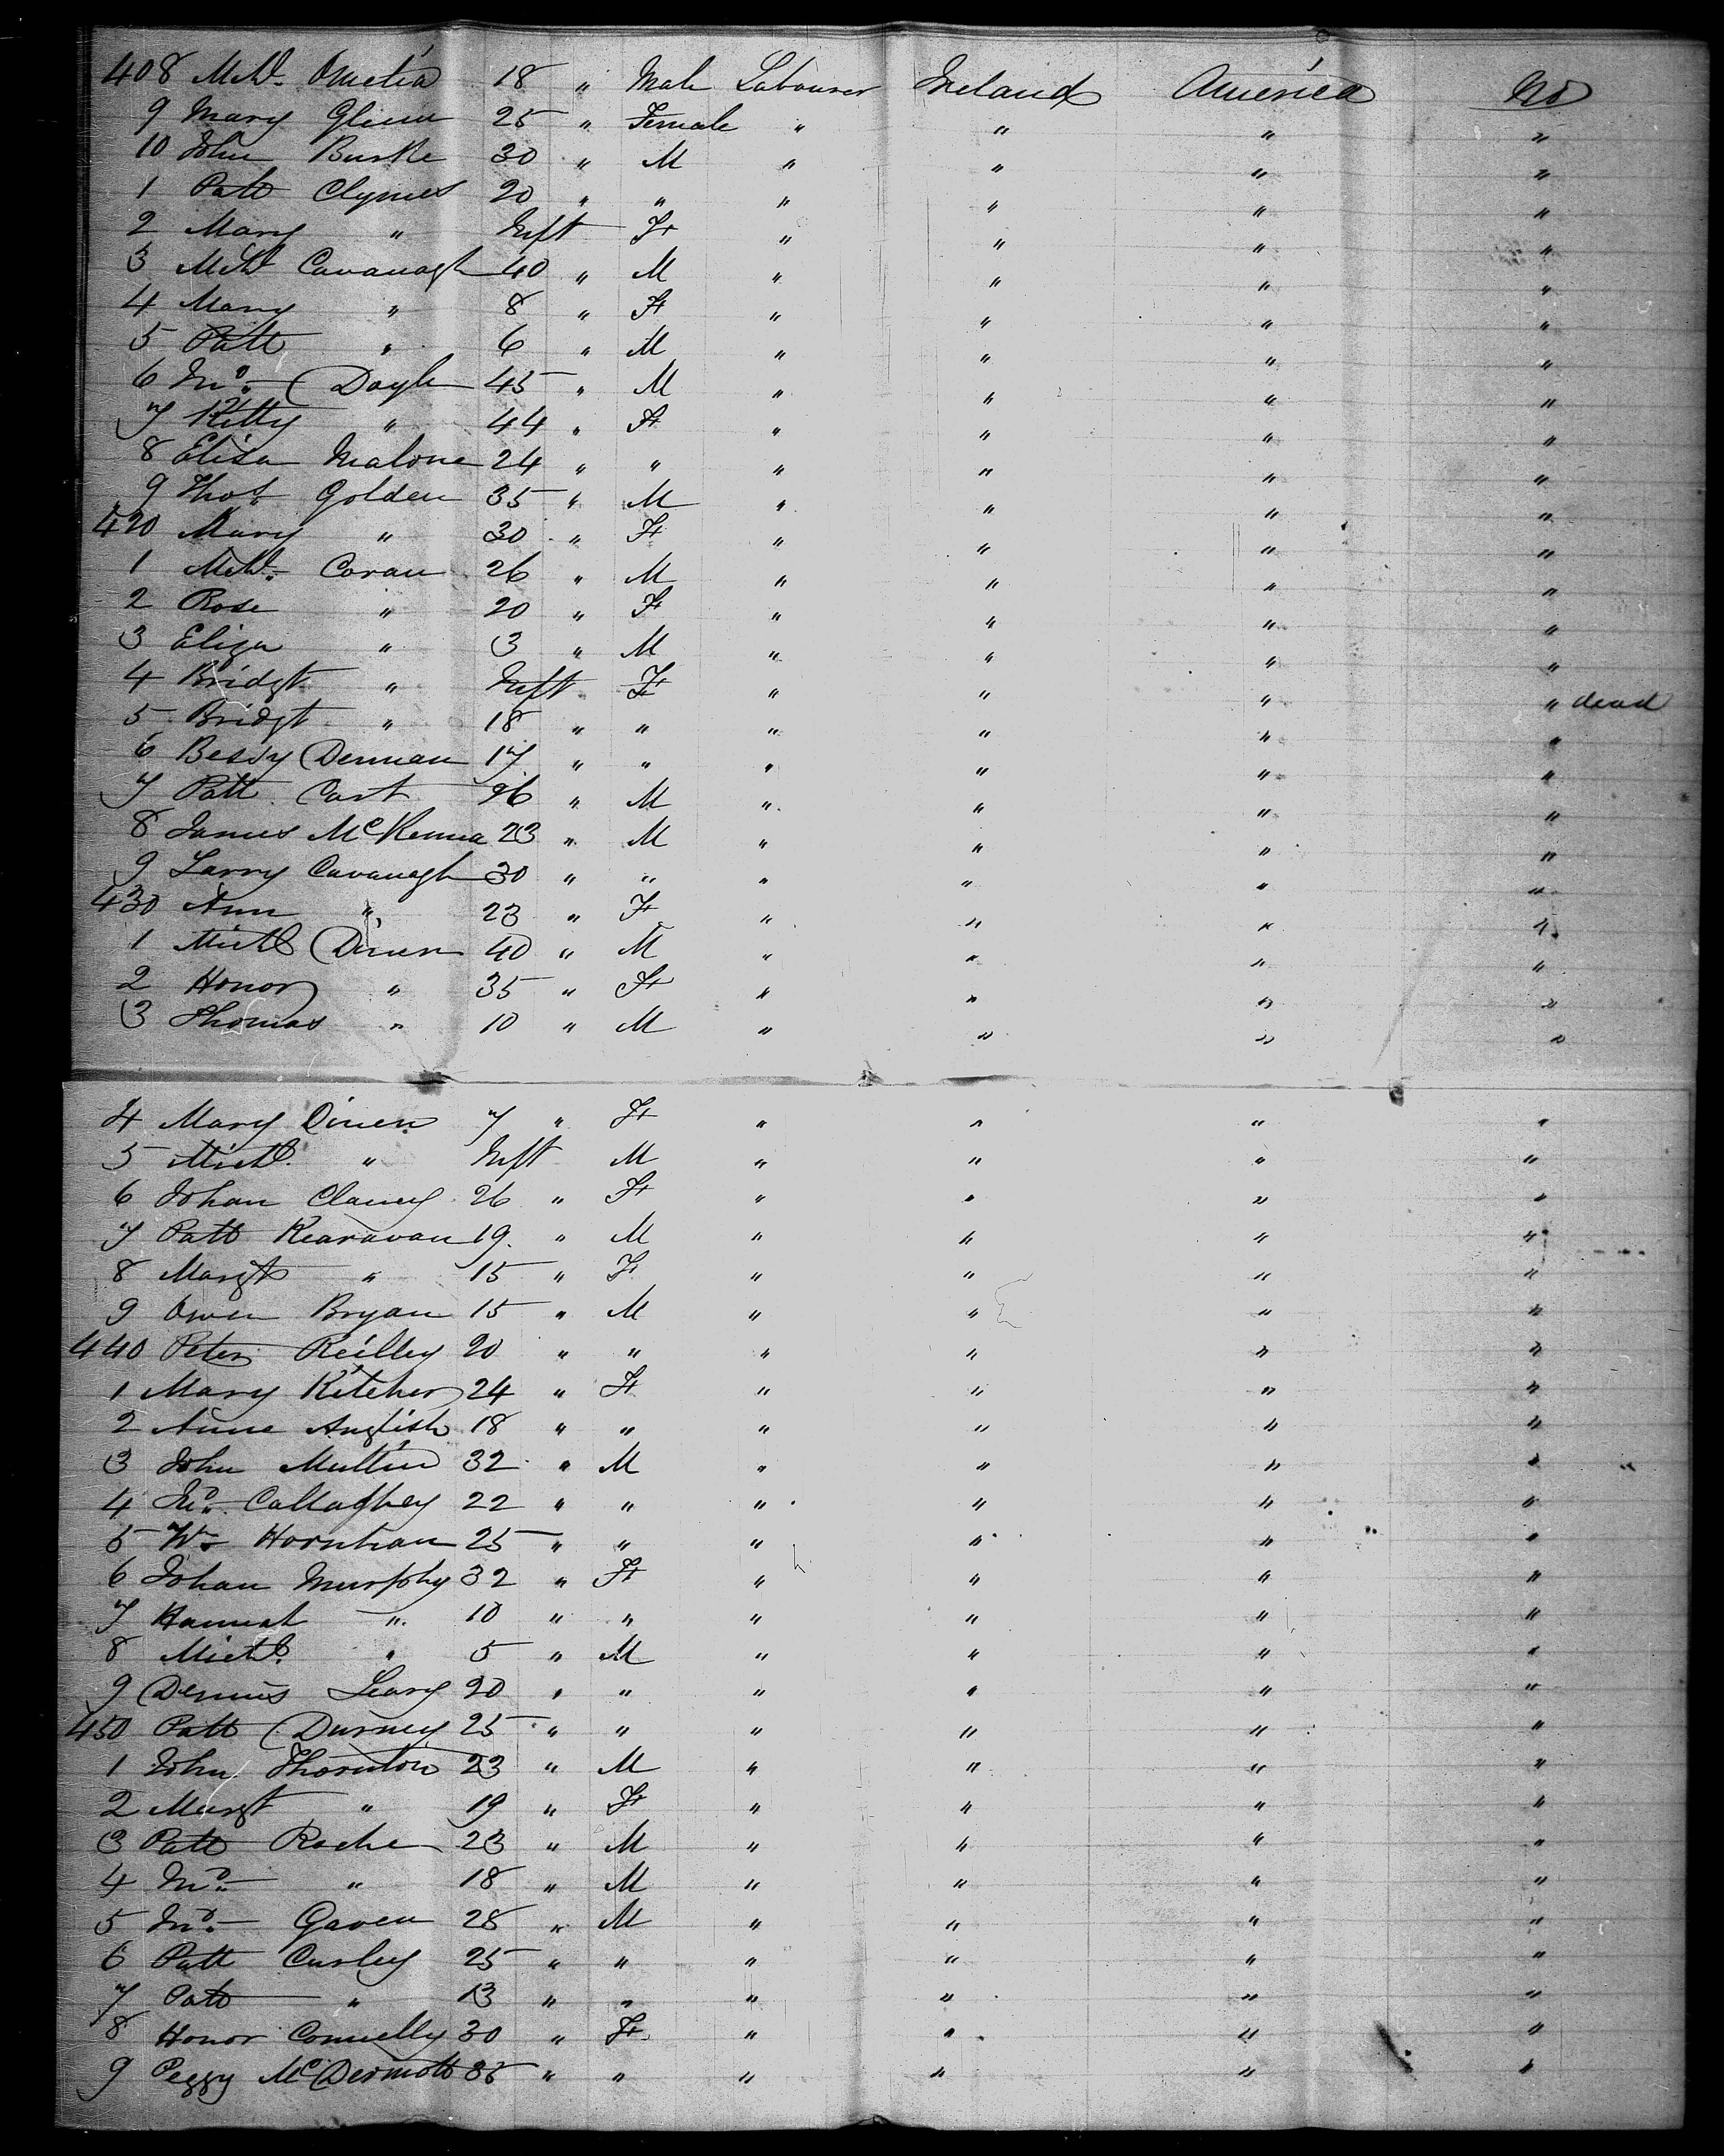 408 Michl. Omelia 18 " Male Labourer Ireland America No
9 Mary Glenn 25 " Female " " " "
10 John Burke 30 " M " " " "
1 Patt Clymes 20 " " " " " "
2 Mary " Inft F " " " "
3 Michl Cavanagh 40 " M " " " "
4 Mary " 8 " F " " " "
5 Patt " 6 " M " " " "
6 Jno. Doyle 45 " M " " " "
7 Kitty " 44 " F " " " "
8 Elisa Malone 24 " " " " " "
9 Thos. Golden 35 " M " " " "
420 Mary " 30 " F " " " "
1 Michl. Coran 26 " M " " " "
2 Rose " 20 " F " " " "
3 Eliza " 3 " M " " " "
4 Bridgt " Inft F " " " " dead
5 Bridgt " 18 " " " " " "
6 Bessy Dennan 17 " " " " " "
7 Patt Cast 26 " M " " " "
8 James McKenna 23 " M " " " "
9 Larry Cavanagh 30 " " " " " "
430 Ann " 23 " F " " " "
1 Michl Dinen 40 " M " " " "
2 Honor " 35 " F " " " "
3 Thomas " 10 " M " " " "
4 Mary Dinen 7 " F " " " "
5 Michl. " Inft M " " " "
6 Johan Clancy 26 " F " " " "
7 Patt Kearavan 19 " M " " " "
8 Margt " 15 " F " " " "
9 Owen Bryan 15 " M " " " "
440 Peter Reilley 20 " " " " " "
1 Mary Kitcher 24 " F " " " "
2 Anne Anglish 18 " " " " " "
3 John Mullin 32 " M " " " "
4 Jno. Callaghey 22 " " " " " "
5 Wm Hornhan 25 " " " " " "
6 Johan Murphy 32 " F " " " "
7 Hannah " 10 " " " " " "
8 Michl. " 5 " M " " " "
9 Dennis Leary 20 " " " " " "
450 Patt Durney 25 " " " " " "
1 John Thornton 23 " M " " " "
2 Margt " 19 " F " " " "
3 Patt Roche 23 " M " " " "
4 Jno. " 18 " M " " " "
5 Jno. Gaven 28 " M " " " "
6 Patt Curley 25 " " " " " "
7 Patt " 13 " " " " " "
8 Honor Connelly 30 " F " " " "
9 Peggy McDermott 35 " " " " " "